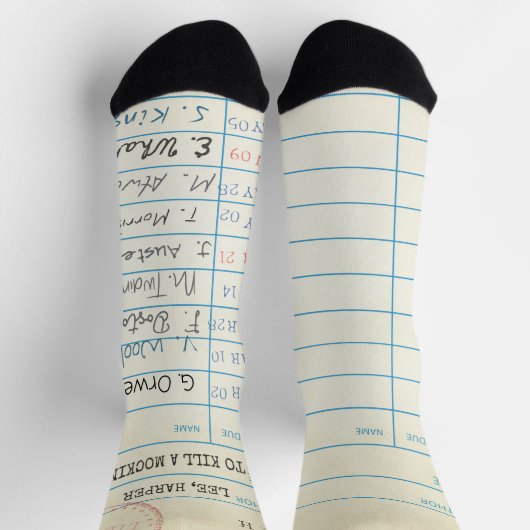 THOR
LEE, HARPER
TO KILL A MOCKIN
DUE NAME
R 02 G. Orwe
AR 10 V. Wool
AR28 F. Dosto
14 M. Twain
21 J. Auste
Y 02 T. Morris
AY 28 M. Atw
09 E. Whar
Y 05 S. Kins
THOR
DUE NAME